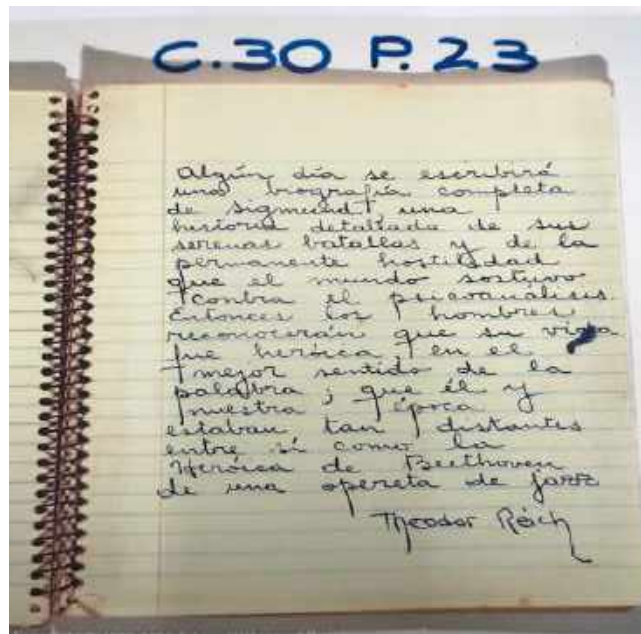 C.30 P.23
Algún día se escribirá
una biografía completa
de Sigmund, una
historia detallada de sus
serenas batallas y de la
permanente hostilidad
que el mundo sostuvo
contra el psicoanálisis.
Entonces los hombres
reconocerán que su vida
fue heróica, en el
mejor sentido de la
palabra; que él y
nuestra época
estaban tan distantes
entre sí como la
Heróica de Beethoven
de una opereta de jazz
Theodor Reich